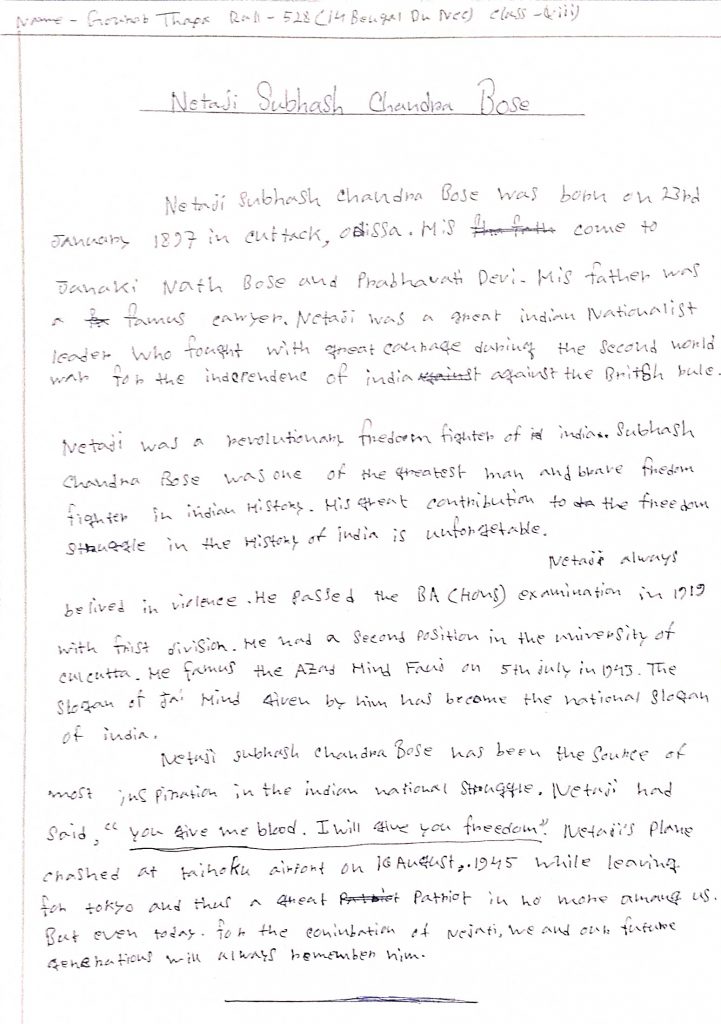 Name - Gourab Thapa Roll - 528 (14 Bengal Bn Ncc) class - (viii)
Netaji Subhash Chandra Bose
Netaji Subhash Chandra Bose was born on 23rd
January 1897 in cuttack, odissa. His come to
Janaki Nath Bose and Prabhavati Devi. His father was
a famus cawyer. Netaji was a great indian Nationalist
leader who fought with great courage during the second world
war for the independenc of india against the British rule.
Netaji was a revolutionary freedom fighter of india. Subhash
Chandra Bose was one of the greatest man and brave fredom
fighter in indian History. His great contribution to the freedom
struggle in the History of india is unforgetable.
Netaji always
belived in violence. He passed the BA (Hons) examination in 1919
with frist division. He had a second position in the university of
culcutta. He famus the Azad Hind Fauj on 5th july in 1943. The
slogan of Jai Hind given by him has become the national slogan
of india.
Netaji subhash chandra Bose has been the source of
most inspiration in the indian national struggle. Netaji had
said, "you give me blood. I will give you freedom". Netaji's Plane
crashed at taihoku airport on 16 August, 1945 while leaving
for tokyo and thus a great Patriot in no more among us.
But even today. for the of we and our future
generations will always remember him.